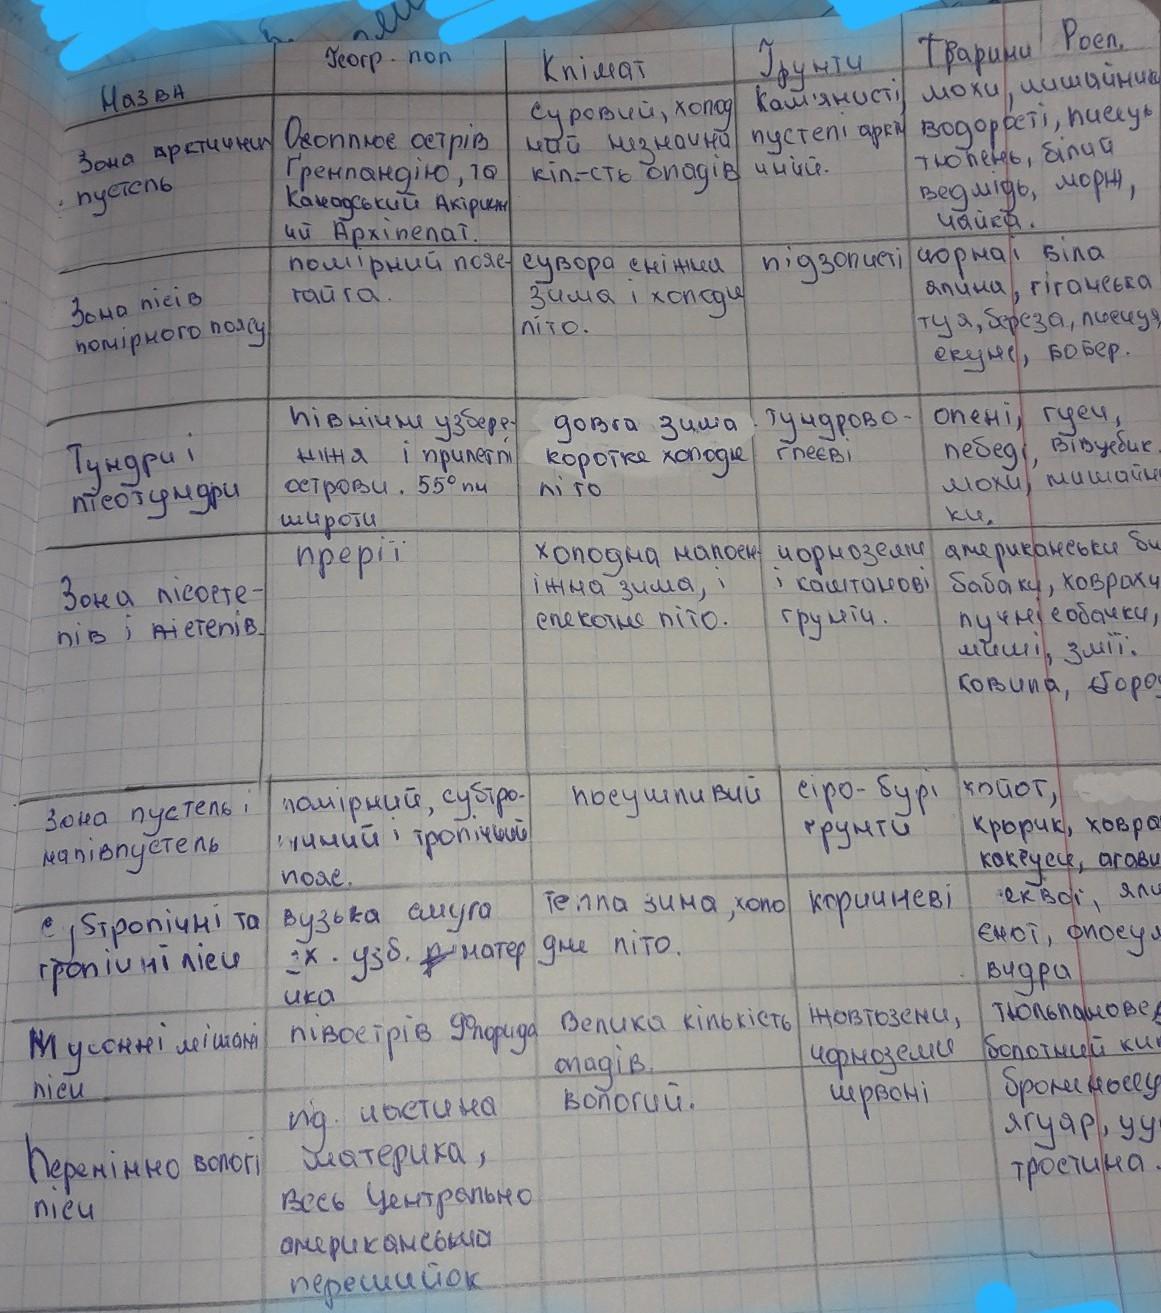 Назва
Геогр. пол
Клімат
Ґрунти
Тварини Росл.
Зона арктичних
пустель
Охоплює острів
Гренландію, та
Канадський
Архіпелаг.
суровий, холод
ний незначна
кіл-сть опадів
Кам'янисті
пустелі аркт
ичній.
мохи, лишайник
водорості, песець
тюлень, білий
ведмідь, морж,
чайка.
Зона лісів
помірного поясу
помірний пояс-
тайга.
сувора сніжна
зима і холодне
літо.
підзолисті
чорна і біла
ялина, гігантська
туя, береза,
скунс, бобер.
Тундри і
лісотундри
північне узбере-
жжя і прилеглі
острови. 55° пн
широти
довга зима
коротке холодне
літо
Тундрово-
глеєві
олені, гуси,
лебеді, вівцебик
мохи, лишайни
ки.
Зона лісосте-
пів і степів
прерії
холодна малосн-
іжна зима, і
спекотне літо.
чорноземи
і каштанові
ґрунти.
американські бі
бабаки, ховрахи
лучні собачки,
миші, змії.
ковила, боро
Зона пустель і
напівпустель
помірний, субтро-
пичний і тропічний
пояс.
посушливий
сіро-бурі
ґрунти
койот,
кролик, ховра
кактуси, агави
субтропічні та
тропічні ліси
вузька смуга
зх. узб. матер
ика
тепла зима, холо
дне літо.
коричневі
секвої, яли
єнот, опосум
видра
Мусонні мішані
ліси
півострів Флорида
Велика кількість
опадів.
жовтозени,
чорноземи
тюльпанове д
болотний кип
Перемінно вологі
ліси
пд. частина
материка,
весь Центрально
американський
перешийок
Вологий.
червоні
броненосец
ягуар, цу
тростина.